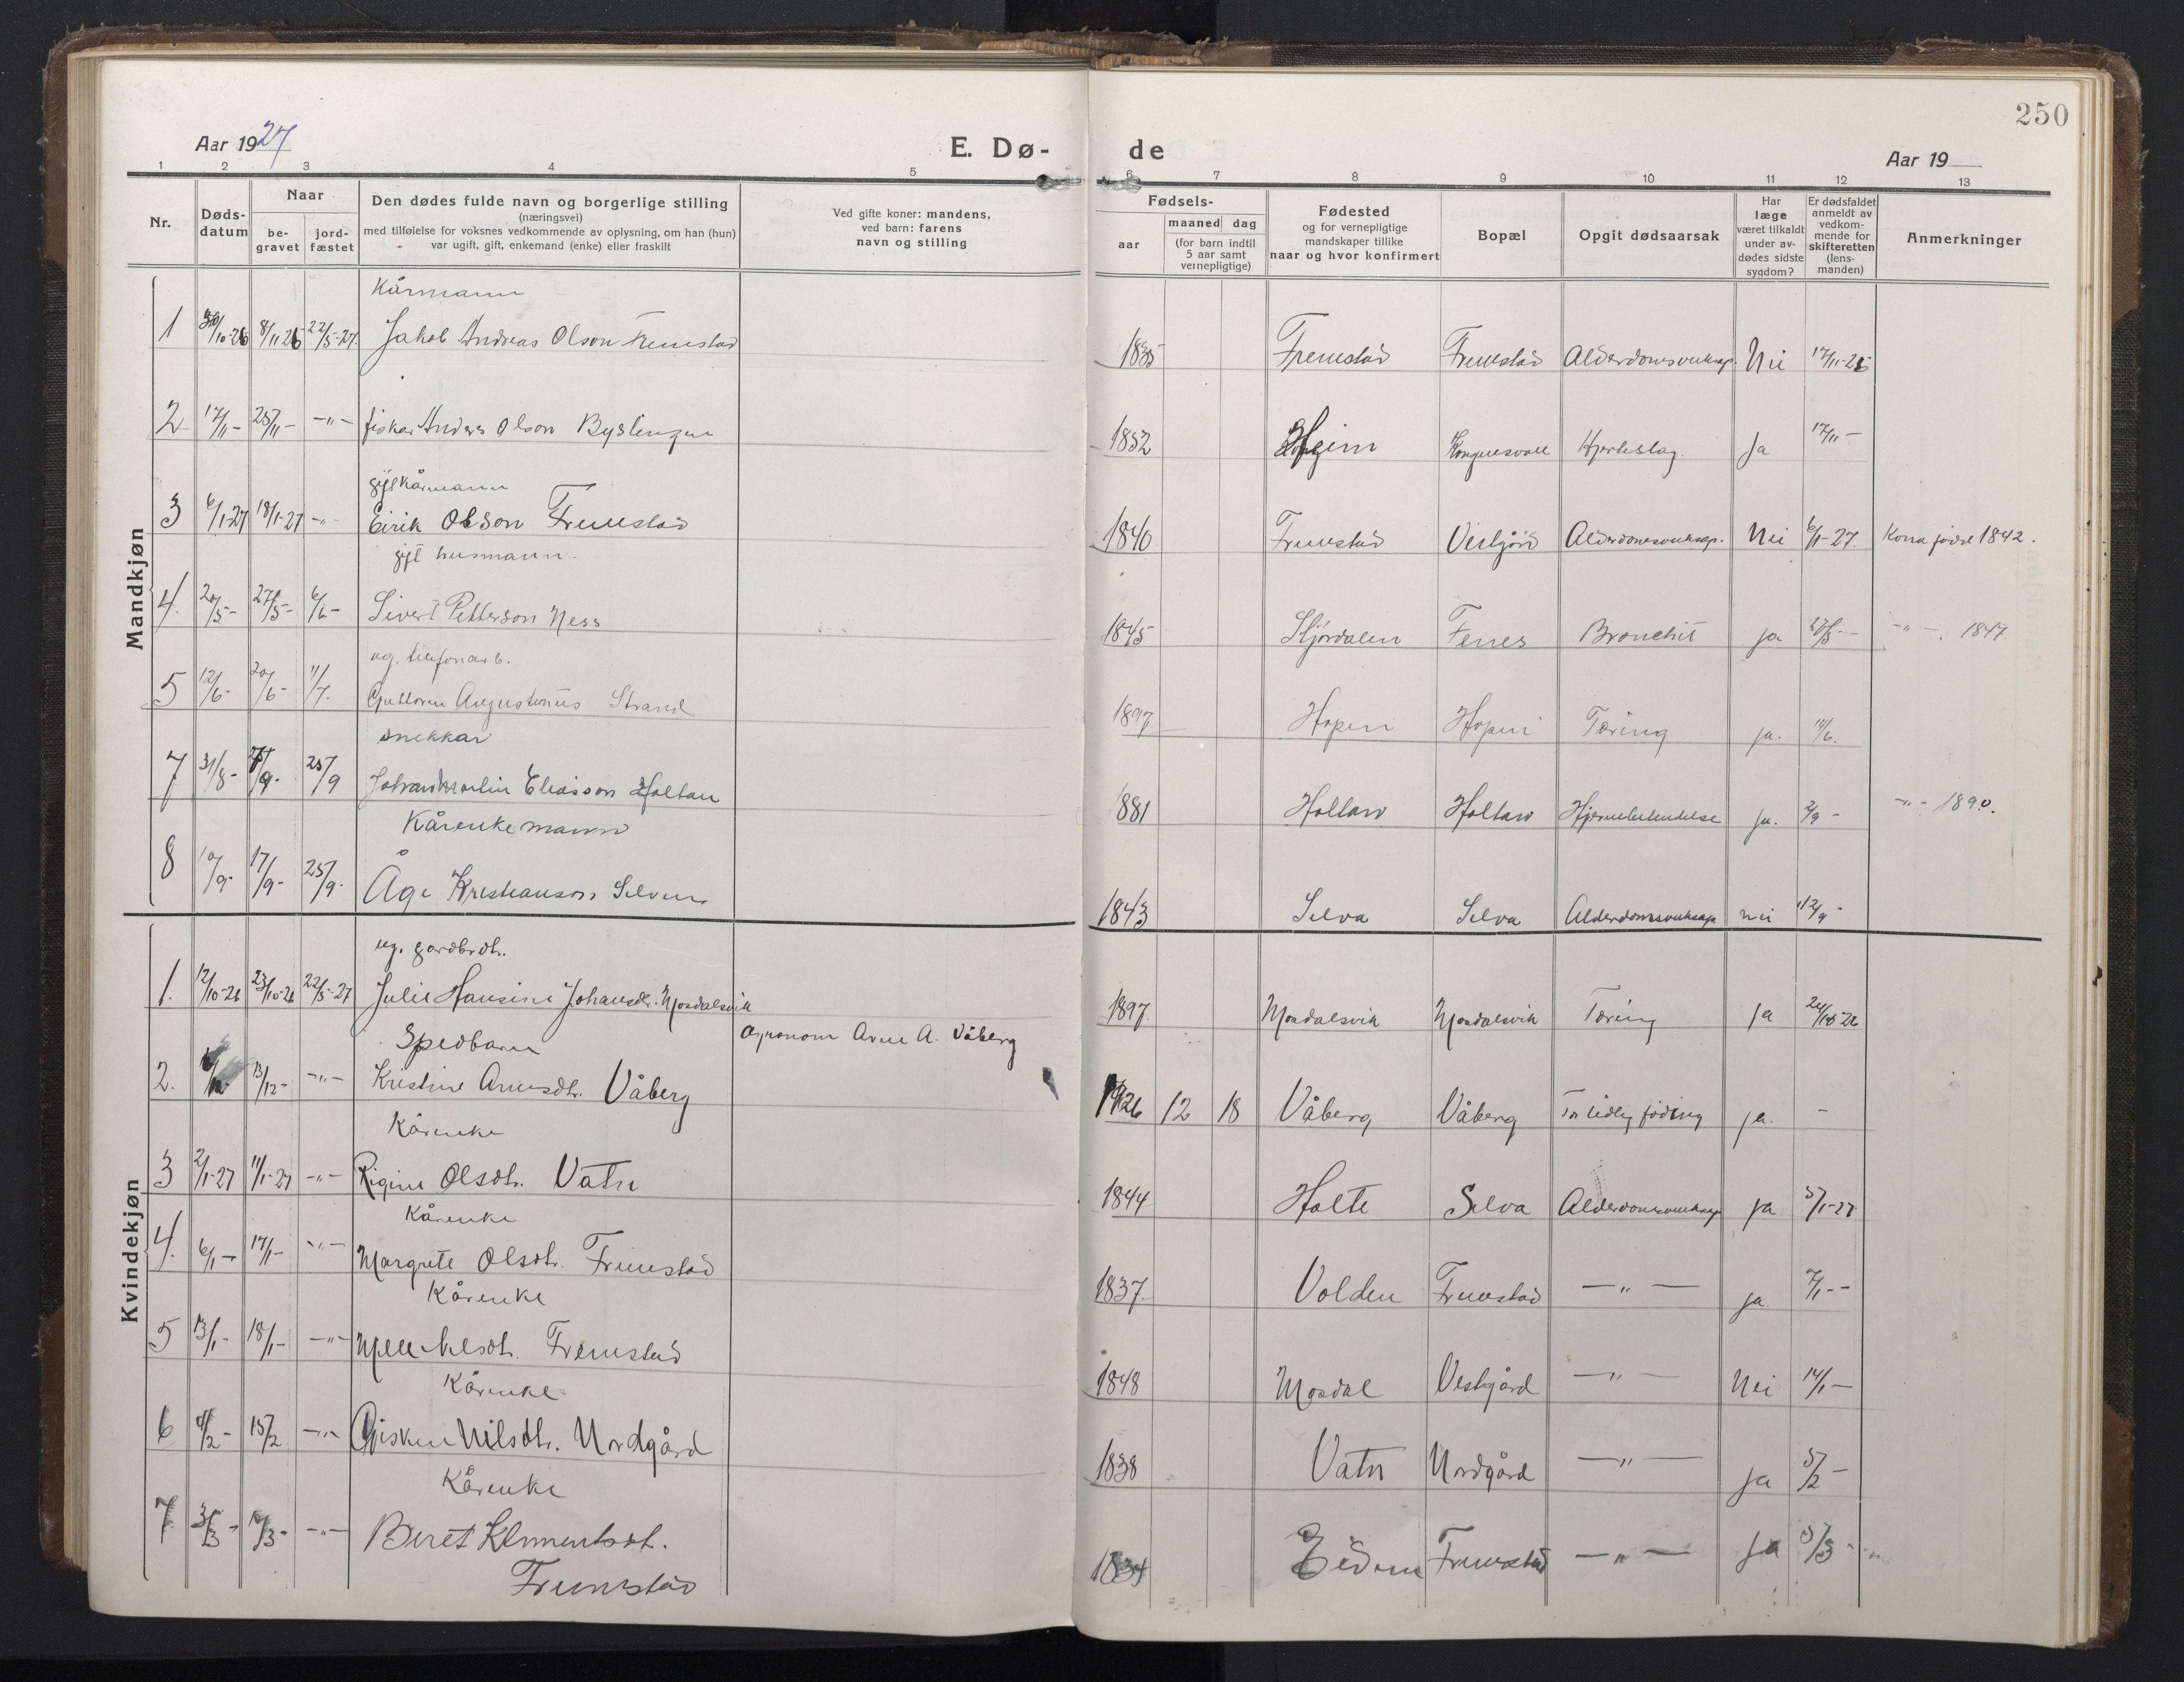 250
Aar 1927
E. Dø-
de
Aar 19
1 2 3 4 5 6 7 8 9 10 11 12 13
Nr.
Døds-
datum
Naar
be-
gravet
jord-
fæstet
Den dødes fulde navn og borgerlige stilling
(næringsvei)
med tilføielse for voksnes vedkommende av oplysning, om han (hun)
var ugift, gift, enkemand (enke) eller fraskilt
Ved gifte koner: mandens,
ved barn: farens
navn og stilling
Fødsels-
aar
maaned dag
(for barn indtil
5 aar samt
vernepligtige)
Fødested
og for vernepligtige
mandskaper tillike
naar og hvor konfirmert
Bopæl
Opgit dødsaarsak
Har
læge
været tilkaldt
under av-
dødes sidste
sygdom?
Er dødsfaldet
anmeldt av
vedkom-
mende for
skifteretten
(lens-
manden)
Anmerkninger
Mandkjøn
Kårmann
1 30/10-26 8/11 26 22/5-27 Jakob Andreas Olson Fremstad 1835 Fremstad Fremstad Alderdomsveiksap. Nei 17/11-26
2 17/11- 25/11- -"- fiskar Anders Olson Byslingen 1852 Hgeim Kongensvoll Hjerteslag. Ja 17/11-
gift kårmann
3 6/1-27 18/1-27 -"- Eirik Olson Fremstad 1840 Fremstad Vestgård Alderdomsveiksap. Nei 6/1-27. Kona född 1842.
gift husmann.
4. 20/5- 27/5- 6/6- Sivert Petterson Ness 1845 Stjördalen Fenes Bronchit ja 28/5- -"- 1847.
ug. telefonarb.
5 12/6- 20/6- 11/7. Guttorm Augustinus Strand 1897 Hopen Hopen Tæring ja. 14/6.
snekkar
7 31/8- 7/9- 25/9 Johan Martin Eliasson Holtan 1881 Holtan Holtan Hjernebetendelse ja. 2/9- -"- 1890.
Kårenkemann
8 10/9- 17/9- 25/9. Åge Kristianson Selven 1843 Selva Selva Alderdomsveiksap nei 12/9-
Kvindekjøn
ug. gardbrdt.
1. 12/10-26 23/10-26 22/5-27 Julie Hansine Johansdt. Mosdalsvik 1897. Mosdalsvik Mosdalsvik Tæring ja 24/10-26
Spedbarn Agronom Arne A. Våberg
2. 13/12- -"- Kristine Arnesdt. Våberg 1926 12 18 Våberg Våberg For tidleg föding ja. -
Kårenke
3 2/1-27 11/1-27 -"- Rigine Olsdt. Vatn 1844 Holte Selva Alderdomsveiksap ja 5/1-27
Kårenke
4. 6/1- 17/1- -"- Margrete Olsdt. Fremstad 1837. Volden Fremstad -"- ja 7/1-
Kårenke
5 13/1- 18/1- -"- Mele Nelsdt. Fremstad 1848 Mosdal Vestgård -"- Nei 14/1-
Kårenke
6 4/2- 15/2 -"- Gisken Nilsdt. Nordgård 1838 Vatn Nordgård -"- ja 5/2-
Kårenke
7 3/3- 10/3- -"- Beret Klementsdt. 1834 Eidem Fremstad -"- ja 5/3-
Fremstad